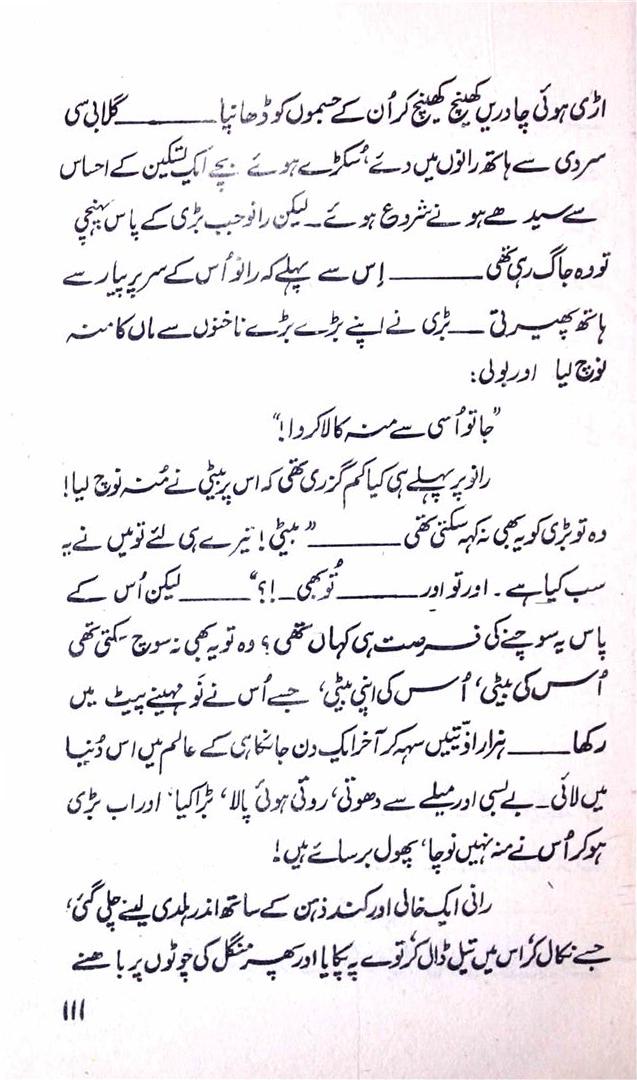 اڑی ہوئی چادریں کھینچ کھینچ کر اُن کے جسموں کو ڈھانپا ــــــــ گلابی سی
سردی سے ہاتھ رانوں میں دئے، سُکڑے ہوئے بچے ایک تسکین کے احساس
سے سیدھے ہونے شروع ہوئے ــ لیکن رانو جب بڑی کے پاس پہنچی
تو وہ جاگ رہی تھی ــــــــ اِس سے پہلے کہ رانو اُس کے سر پر پیار سے
ہاتھ پھیرتی ــــ بڑی نے اپنے بڑے بڑے ناخنوں سے ماں کا منہ
نوچ لیا اور بولی:
”جا تو اُسی سے منہ کالا کروا!“
رانو پر پہلے ہی کیا کم گزری تھی کہ اس پر بیٹی نے مُنہ نوچ لیا!
وہ تو بڑی کو یہ بھی نہ کہہ سکتی تھی ــــــــ ”بیٹی! تیرے ہی لئے تو میں نے یہ
سب کیا ہے۔ اور تو اور ــــــــ تُو بھی ــ!؟“ ــــــــ لیکن اُس کے
پاس یہ سوچنے کی فرصت ہی کہاں تھی؟ وہ تو یہ بھی نہ سوچ سکتی تھی
اُس کی بیٹی، اُس کی اپنی بیٹی، جسے اُس نے نَو مہینے پیٹ میں
رکھا ــــــ ہزار اذیّتیں سہہ کر آخر ایک دن جانکاہی کے عالم میں اس دُنیا
میں لائی ــ بے بسی اور میلے سے دھوتی، روتی ہوئی پالا، بڑا کیا، اور اب بڑی
ہو کر اُس نے منہ نہیں نوچا، پھول برسائے ہیں!
رانی ایک خالی اور کند ذہن کے ساتھ اندر ہلدی لینے چلی گئی،
جسے نکال کر، اس میں تیل ڈال کر توے پہ پکایا اور پھر منگل کی چوٹوں پر باندھنے
۱۱۱